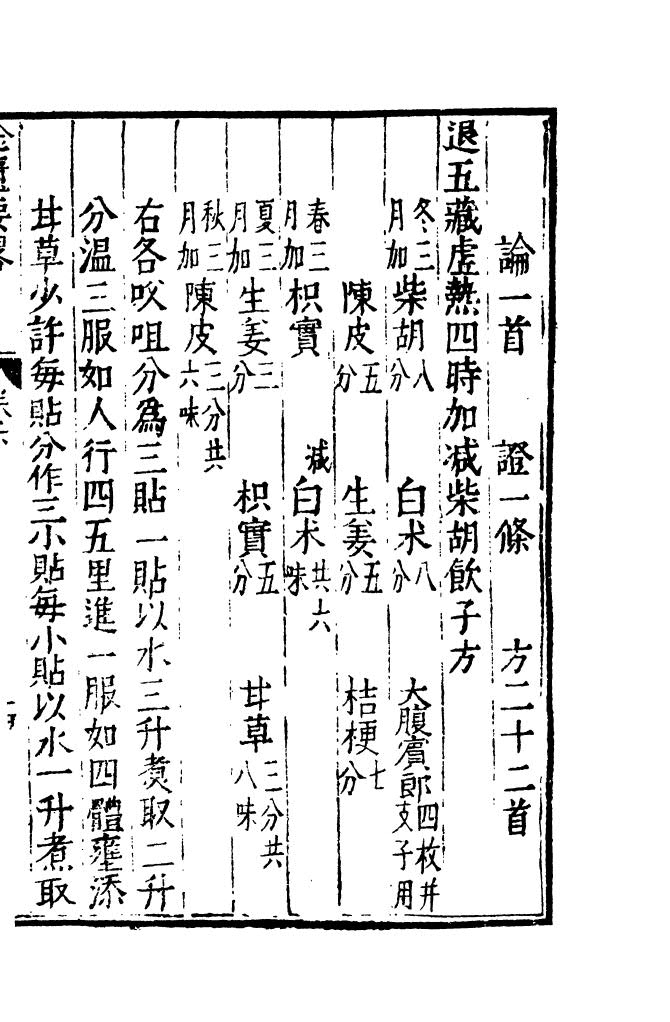 論一首　證一條　方二十二首
退五藏虛熱四時加减柴胡飲子方
冬三月加柴胡八分　白术八分　大腹賔郎四枚并皮子用
陳皮五分　生姜五分　桔梗七分
春三月加枳實　减白术共六味
夏三月加生姜三分　枳實五分　甘草三分共八味
秋三月加陳皮三分共六味
右各㕮咀分為三貼一貼以水三升煑取二升
分温三服如人行四五里進一服如四體壅添
甘草少許每貼分作三小貼每小貼以水一升煮取